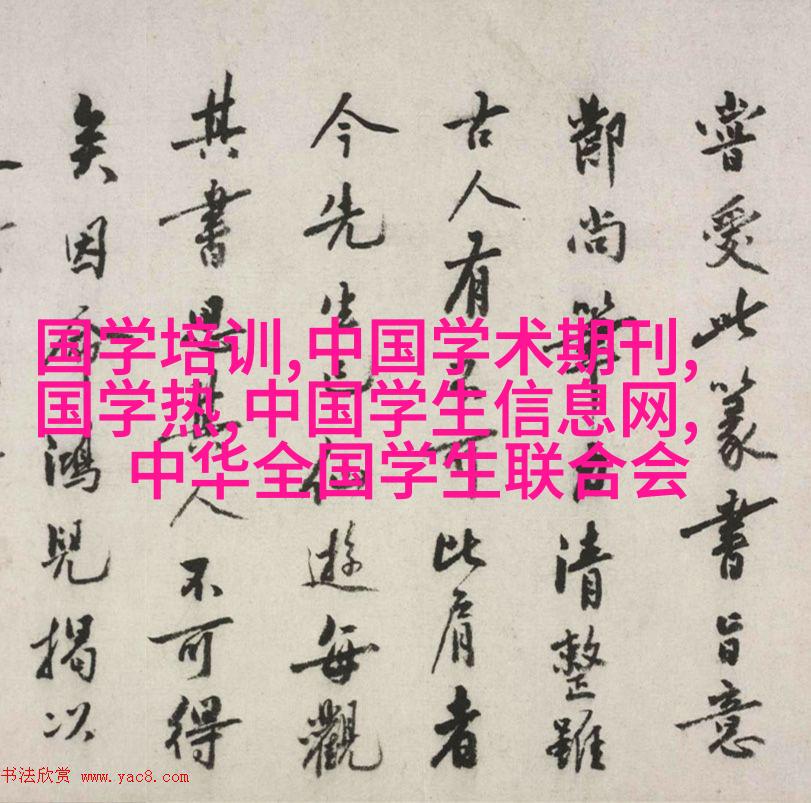 国学培训,中国学术期刊,
国学热,中国学生信息网,
中华全国学生联合会
嘗受此篆書旨意
尚古清整雖
古人有不可比肩者
今先生已仙遊每觀
其書思其人不可得
矣因鴻兒揭以
书法欣赏 www.yac8.com